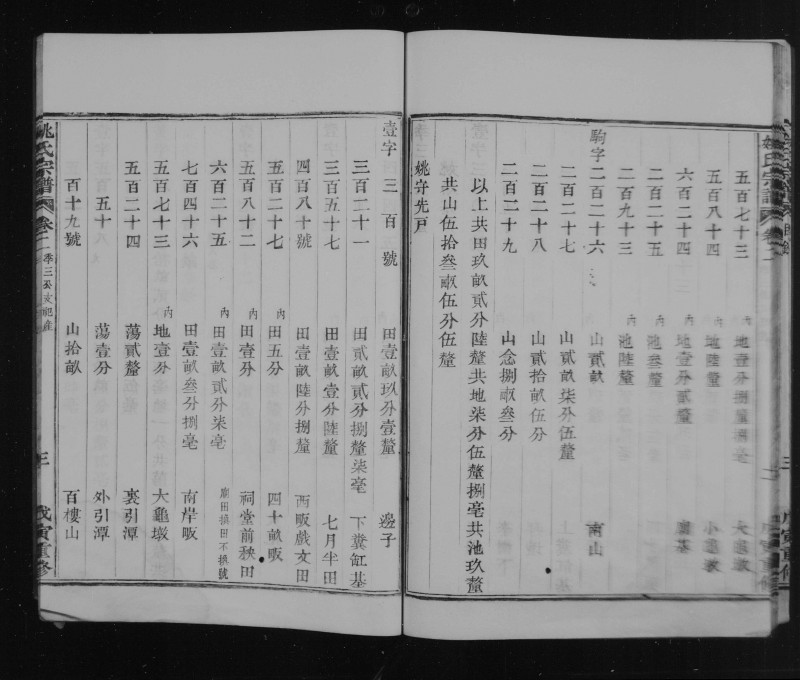 五百七十三 內 地壹分捌釐捌毫 大龜墩
五百八十四 內 地陸釐 小龜墩
六百二十四 內 地壹分貳釐 廟基
二百二十五 內 池叁釐
二百九十三 內 池陸釐
駒字 二百二十六 山貳畝 南山
二百二十七 山貳畝柒分伍釐
二百二十八 山貳拾畝伍分
二百二十九 山念捌畝叁分
以上共田玖畝貳分陸釐共地柒分伍釐捌毫共池玖釐
共山伍拾叁畝伍分伍釐
姚守先戸
壹字 三百號 田壹畝玖分壹釐 邊子
三百二十一 田貳畝貳分捌釐柒毫 下糞缸基
三百五十七 田壹畝壹分陸釐 七月半田
四百八十號 田壹畝陸分捌釐 西畈戲文田
五百二十七 內 田五分 四十畝畈
五百八十二 內 田壹分 祠堂前秧田
六百二十五 內 田壹畝貳分柒毫 廟田換田不換號
七百四十六 田壹畝叁分捌毫 南岸畈
五百七十三 內 地壹分 大龜墩
五百二十四 蕩貳釐 裏引潭
五十 蕩壹分 外引潭
百十九號 山拾畝 百樓山
姚氏宗譜 卷二 季三公支祀產 三 戊寅重修